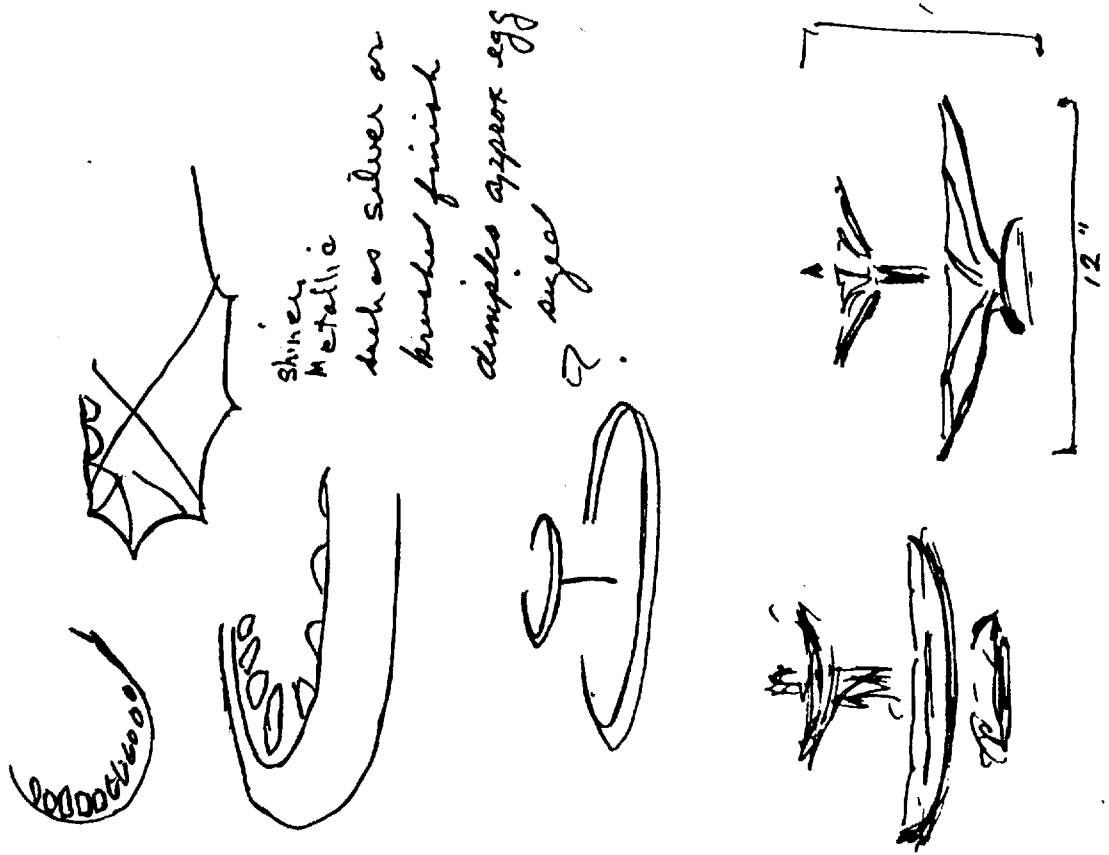 shiney
Metallic
such as silver or
brushed finish
dimples approx egg
size
?
12"